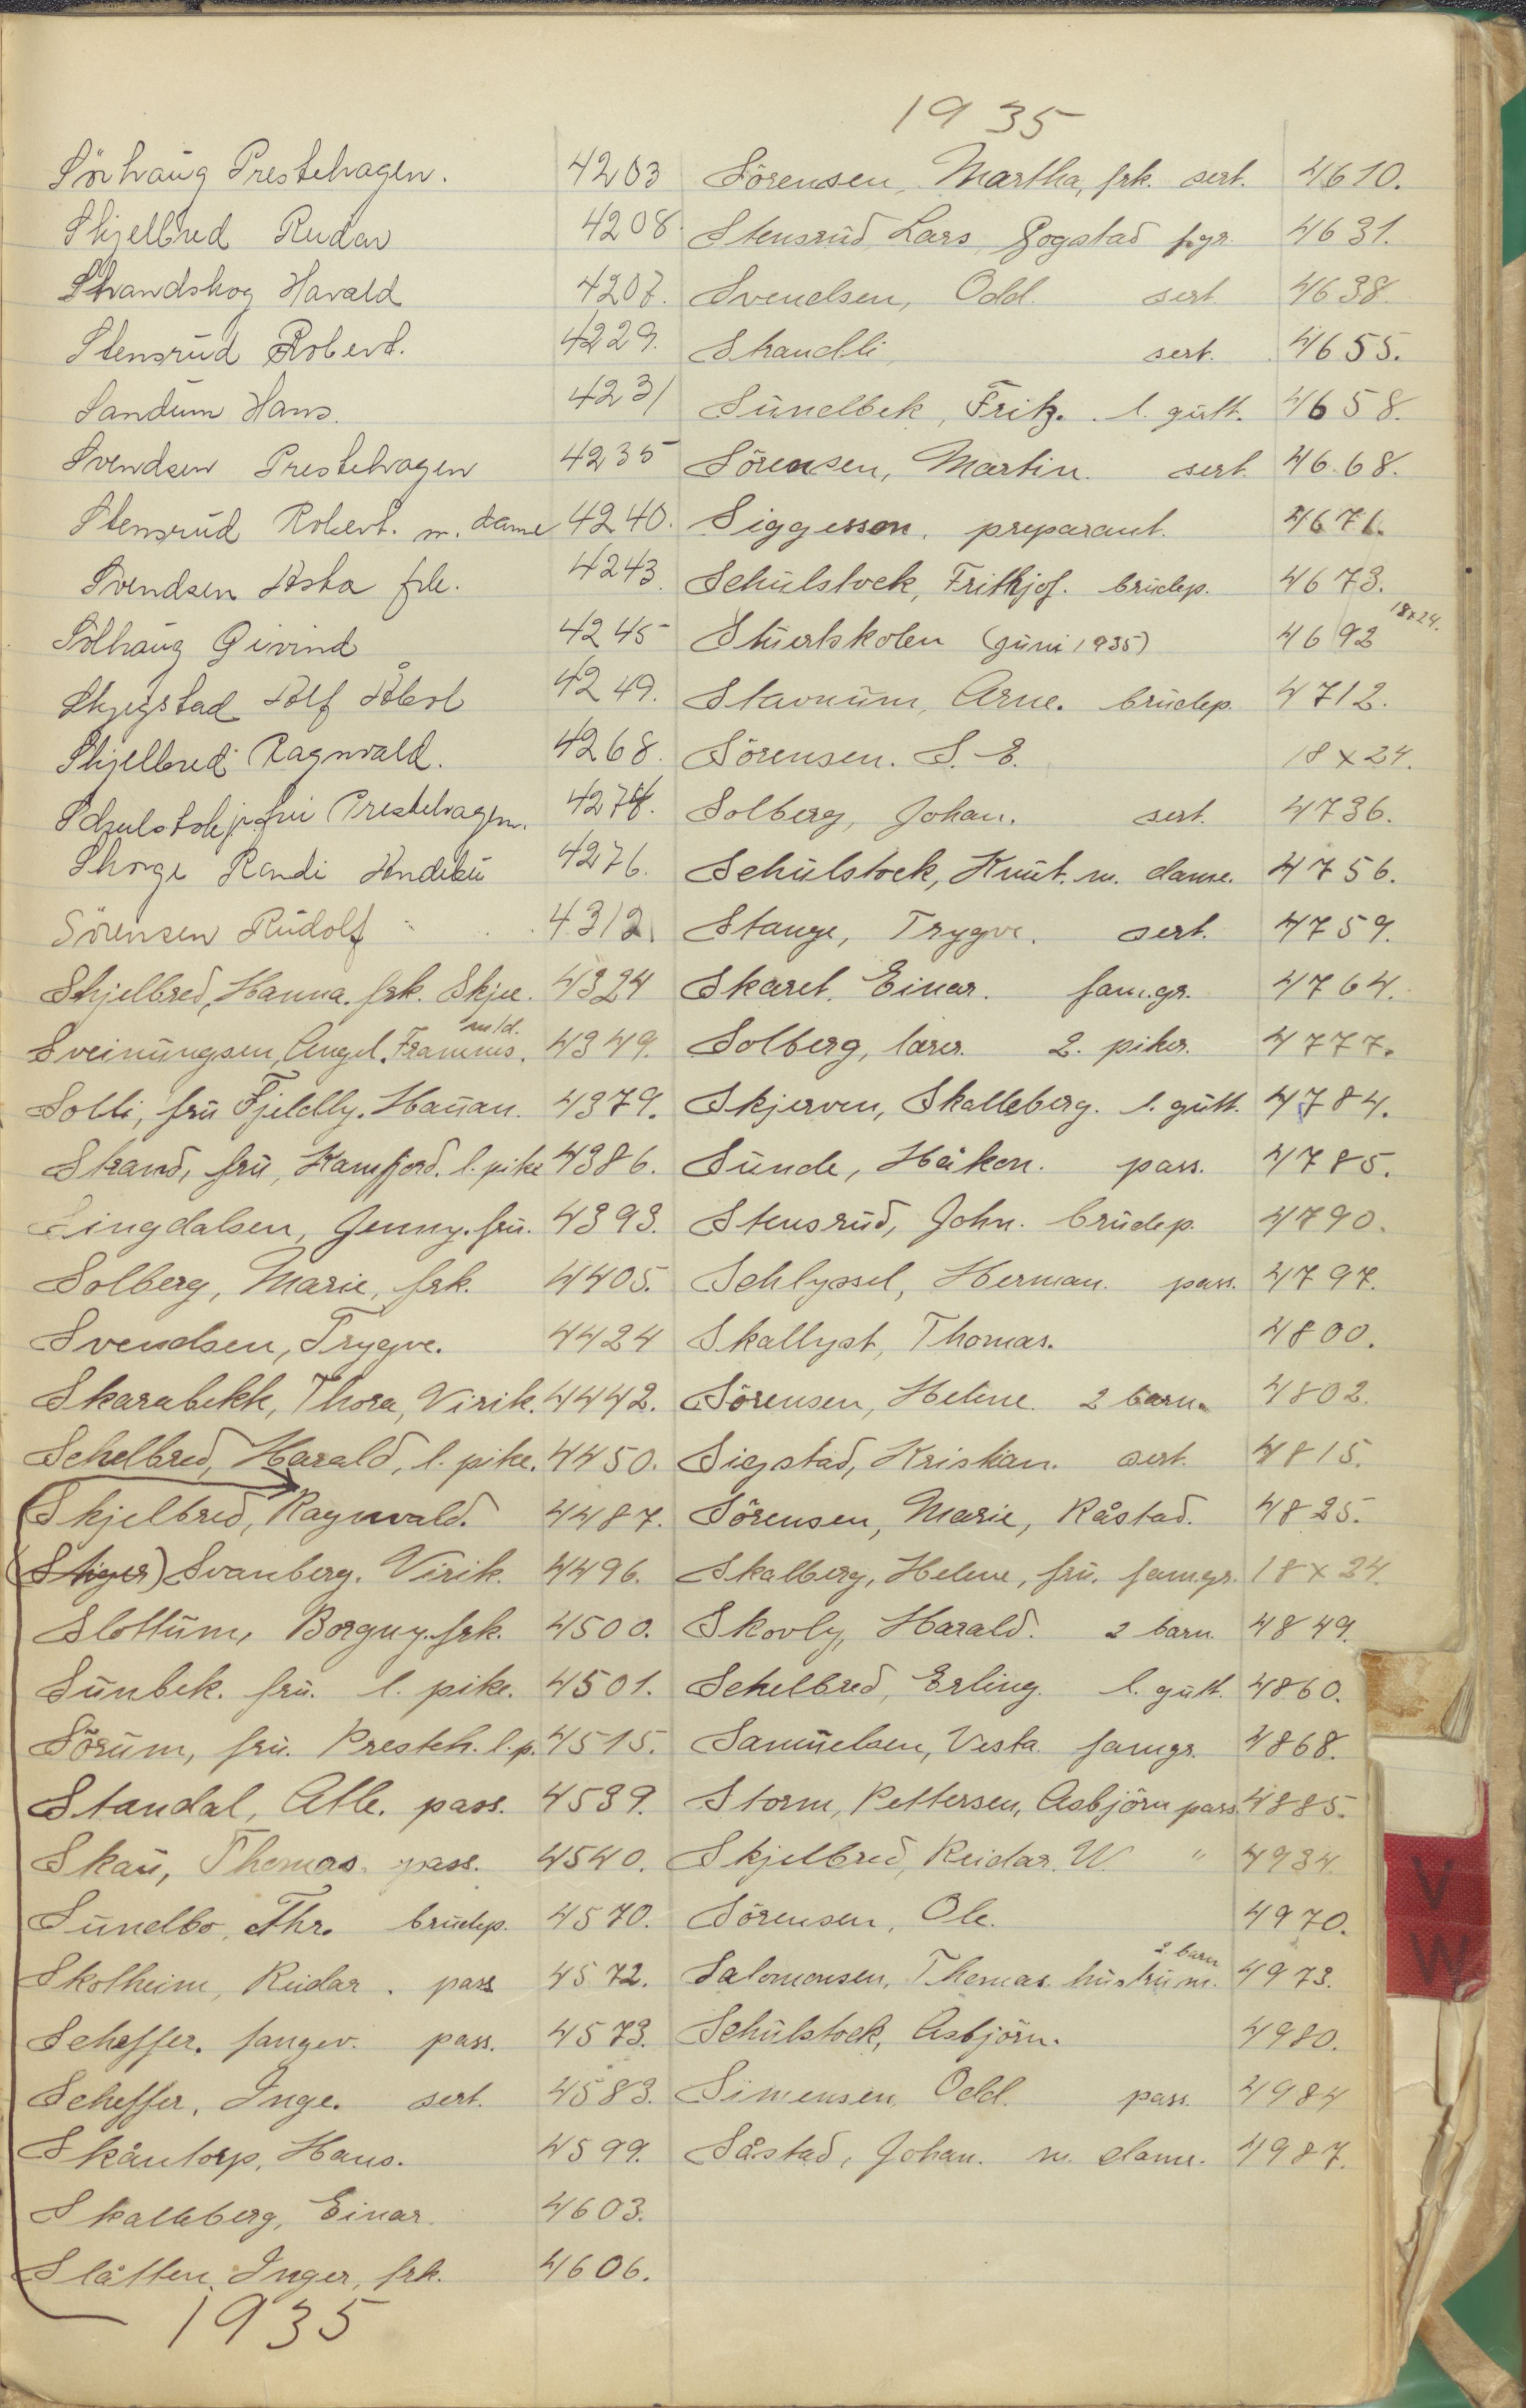 1935
Sörhaug Prestehagen. 4203
Skjelbred Reidar 4208.
Strandskog Harald 4207.
Stensrud Robert. 4229.
Sandum Hans. 4231
Svendsen Prestehagen 4235
Stensrud Robert. m. dame 4240.
Svendsen Asta frk. 4243.
Solhaug Eivind 4245
Skjegstad Rolf 4249.
Skjelbred Ragnvald. 4268.
fru Prestehagen. 4274.
Skorge Randi 4276.
Sörensen Rudolf 4312.
Skjelbred, Hanna. frk. Skjee. 4324
Sveinungsen, Angel. Framnes. m/d. 4349.
Solli, fru Fjeldly. Hauan. 4379.
Strand, fru, Kamfjord. l. pike 4386.
Singdalsen, Jenny. fru. 4393.
Solberg, Marie, frk. 4405.
Svendsen, Trygve. 4424
Skarabekk, Thora, Virik. 4442.
Schelbred, Harald, l. pike. 4450.
Skjelbred, Ragnvald. 4487.
Svanberg. Virik. 4496.
Slottum, Borgny. frk. 4500.
Sunbek. fru. l. pike. 4501.
Sörum, fru. Presteh. l. p. 4515.
Standal, Atle. pass. 4539.
Skau, Thomas. pass. 4540.
Sundbo, Thr. brudep. 4570.
Skolheim, Reidar. pass 4572.
Scheffer. fangev. pass. 4573.
Scheffer, Inge. sert. 4583.
Skåntorp, Hans. 4599.
Skalleberg, Einar. 4603.
Slåtten, Inger, frk. 4606.
1935
Sörensen, Martha, frk. sert. 4610.
Stensrud Lars, Gogstad f.gr. 4631.
Svendsen, Odd. sert. 4638.
Strandli, sert. 4655.
Sundbek, Fritz. l. gutt. 4658.
Sörensen, Martin. sert. 4668.
Siggesson. preparant. 4671.
Schulstock, Frithjof. brudep. 4673.
Stuertskolen (juni 1935) 4692 18x24.
Stavnum, Arne. brudep. 4712.
Sörensen. S. E. 18 x 24.
Solberg, Johan. sert. 4736.
Schulstock, Knut. m. dame. 4756.
Stange, Trygve. sert. 4759.
Skaret. Einar. fam.gr. 4764.
Solberg, lærer. 2. piker. 4777.
Skjerven, Skalleberg. l. gutt. 4784.
Sunde, Håkon. pass. 4785.
Stensrud, John. brudep. 4790.
Schlyssel, Herman. pass. 4797.
Skallyst, Thomas. 4800.
Sörensen, Helene. 2 barn. 4802.
Sigstad, Kristian. sert. 4815.
Sörensen, Marie, Råstad. 4825.
Skalberg, Helene, fru. famgr. 18 x 24.
Skovly, Harald. 2 barn. 4849.
Schelbred, Erling. l. gutt. 4860.
Samuelsen, Vesta. famgr. 4868.
Storm, Pettersen, Asbjörn pass. 4885.
Skjelbred, Reidar. W. " 4934.
Sörensen, Ole. 4970.
Salomonsen, Thomas hustru m. 2 barn 4973.
Schulstock, Asbjörn. 4980.
Simensen, Odd. pass. 4984
Såstad, Johan. m. dame. 4987.
V
W